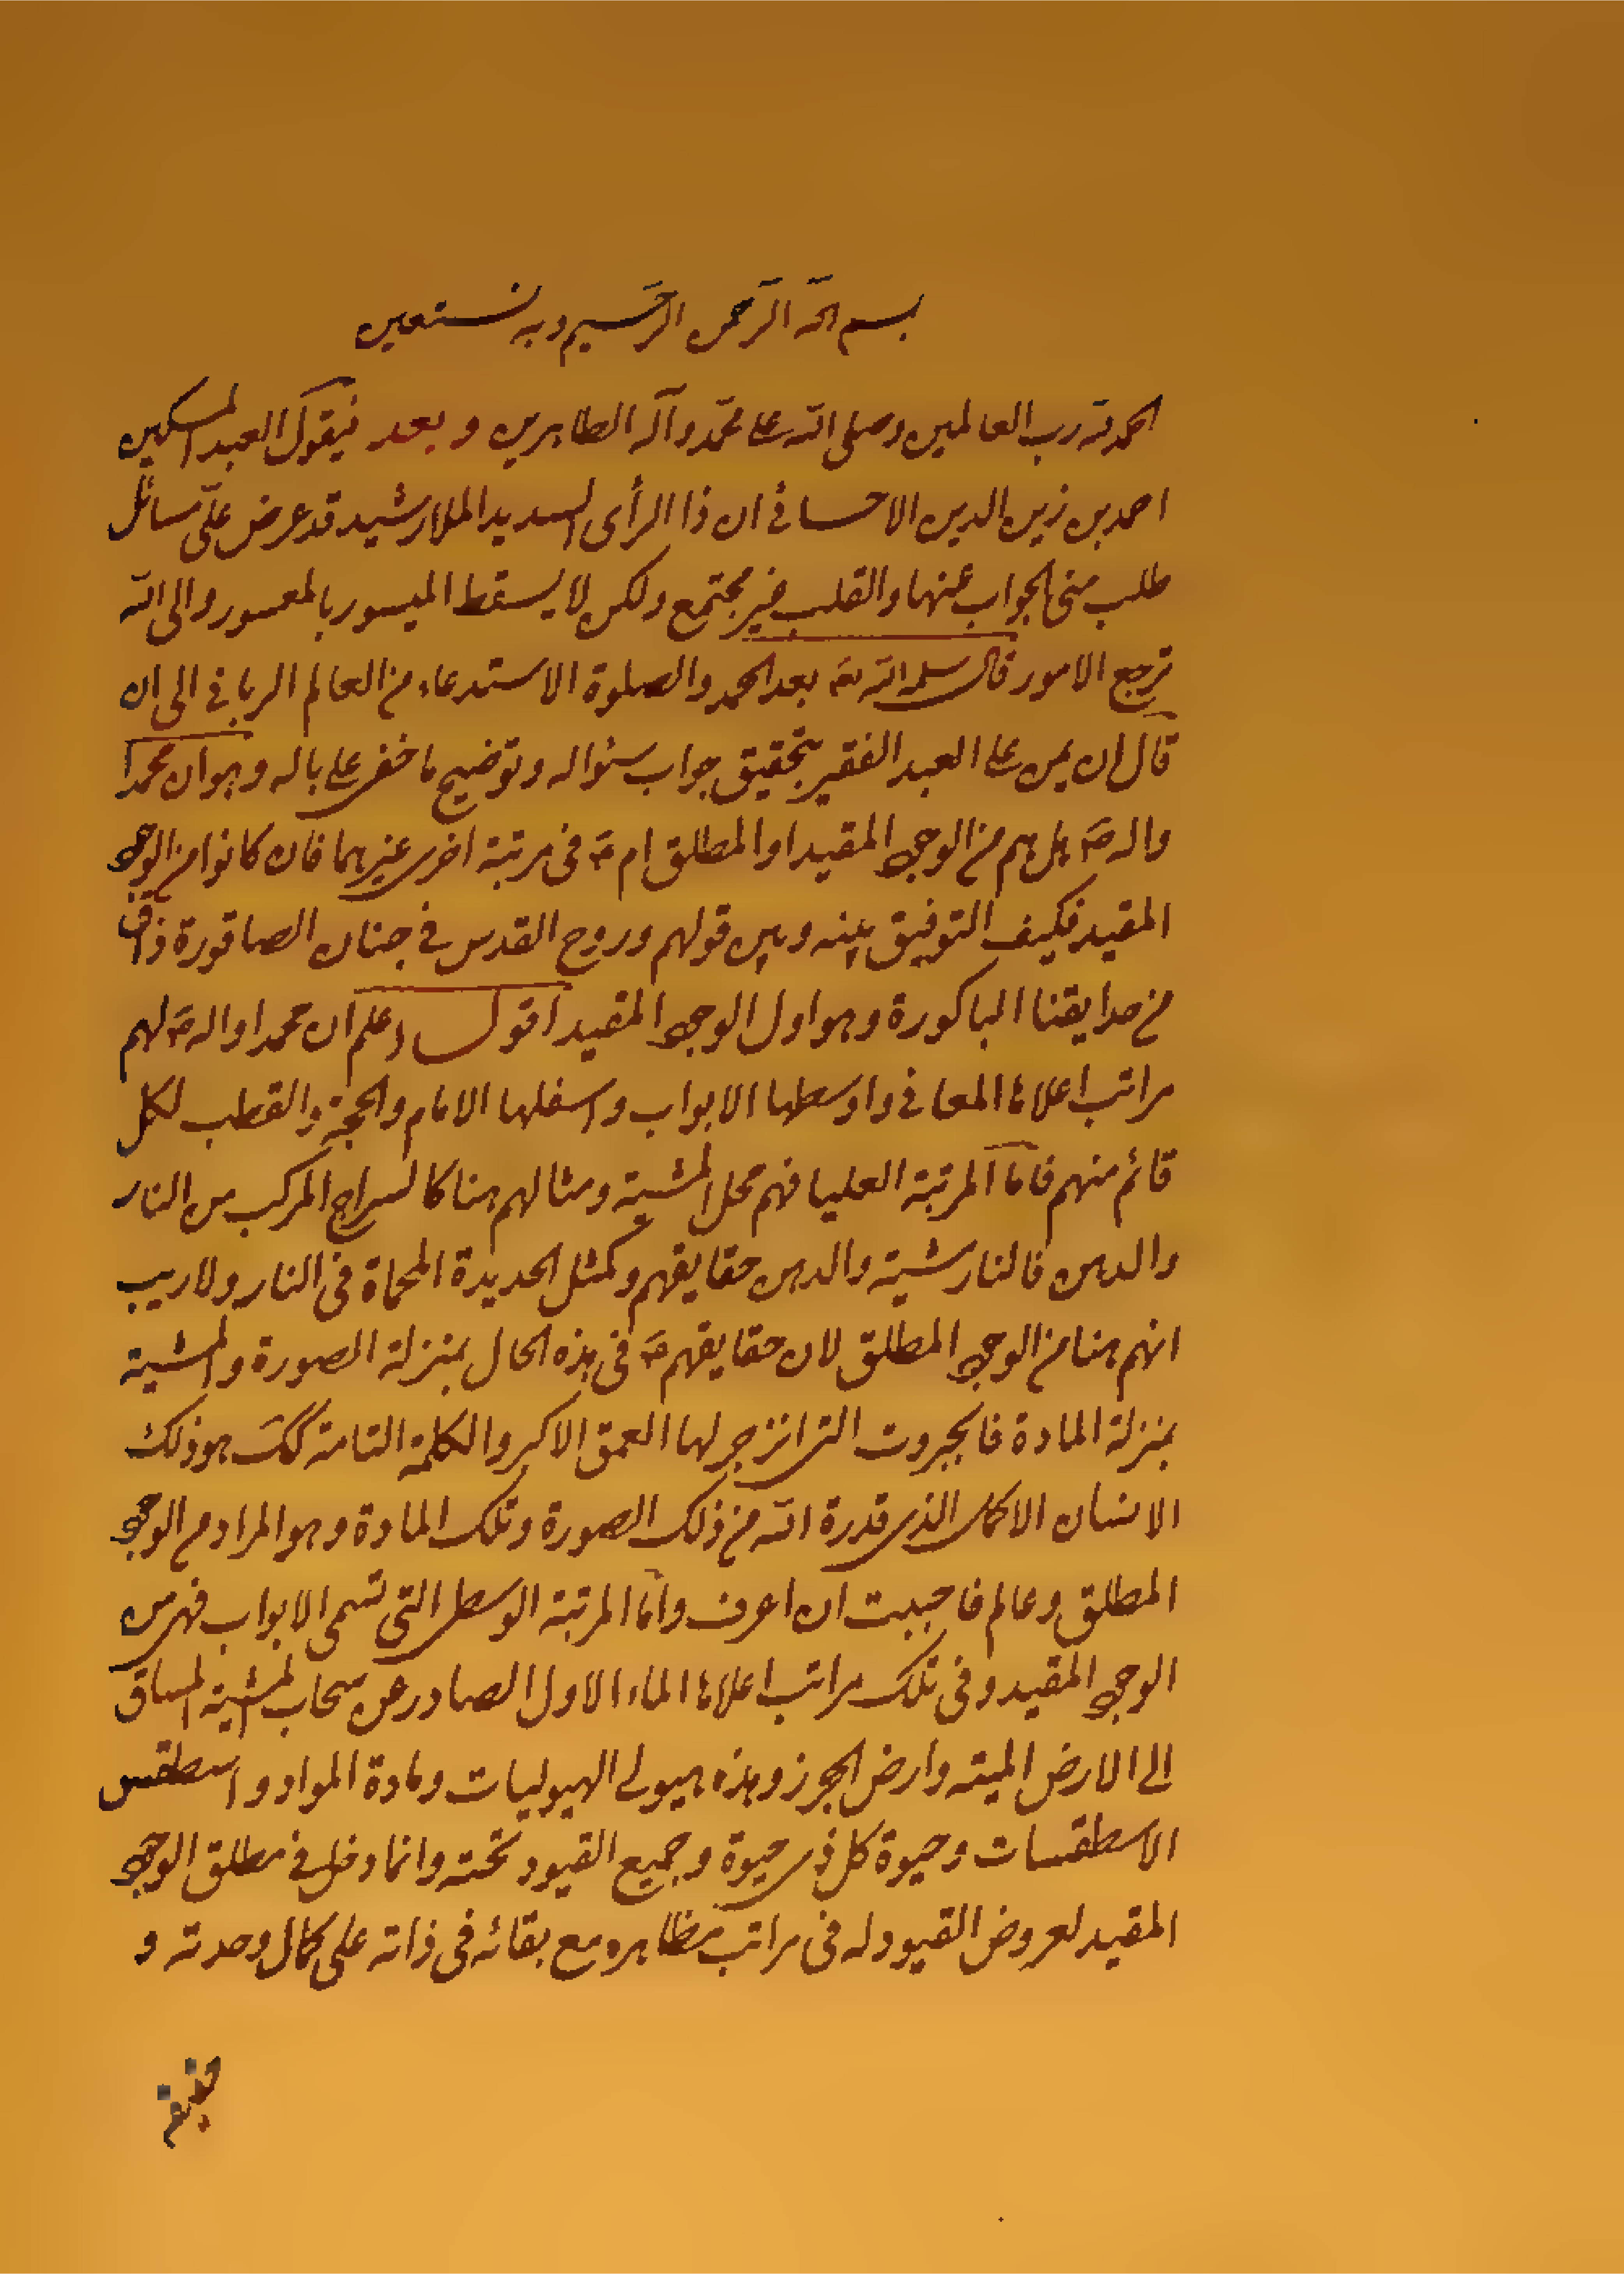 بسم الله الرحمن الرحيم وبه نستعين
الحمد لله رب العالمين وصلى الله على محمد وآله الطاهرين وبعد فيقول العبد المسكين
احمد بن زين الدين الاحسائي ان ذا الرأى السديد الملا رشيد قد عرض علىّ مسائل
طلب منى الجواب عنها والقلب غير مجتمع ولكن لا يسقط الميسور بالمعسور والى الله
ترجع الامور قال سلمه الله تع بعد الحمد والصلوة الاستدعاء من العالم الربانى الى ان
قال ان يمن على العبد الفقير بتحقيق جواب سئواله وتوضيح ما خفى على باله وهو ان محمدا
واله ص هل هم من الوجود المقيد او المطلق ام في مرتبة اخرى غيرهما فان كانوا من الوجود
المقيد فكيف التوفيق بينه وبين قولهم وروح القدس في جنان الصاقورة ذاق
من حدايقنا الباكورة وهو اول الوجود المقيد اقول اعلم ان محمدا واله ص لهم
مراتب اعلاها المعانى واوسطها الابواب واسفلها الامام والحجة والقطب لكل
قائم منهم فاما المرتبة العليا فهم محل المشية ومثالهم هنا كالسراج المركب من النار
والدهن فالنار مشية والدهن حقايقهم وكمثل الحديدة المحماة في النار ولا ريب
انهم هنا من الوجود المطلق لان حقايقهم ص في هذه الحال بمنزلة الصورة والمشية
بمنزلة المادة فالجبروت التى انزجر لها العمق الاكبر والكلمة التامة كك هو ذلك
الانسان الاكمل الذى قدرة الله من ذلك الصورة وتلك المادة وهو المراد من الوجود
المطلق وعالم فاحببت ان اعرف وامّا المرتبة الوسطى التى تسمى الابواب فهى من
الوجود المقيد وفى تلك مراتب اعلاها الماء الاول الصادر عن سحاب المشية المساق
الى الارض الميته وارض الجرز وهذه هيولى الهيوليات ومادة المواد واسطقس
الاسطقسات وحيوة كل ذى حيوة وجميع القيود تحته وانما دخل في مطلق الوجود
المقيد لعروض القيود له في مراتب مظاهره مع بقائه في ذاته على كمال وحدته و